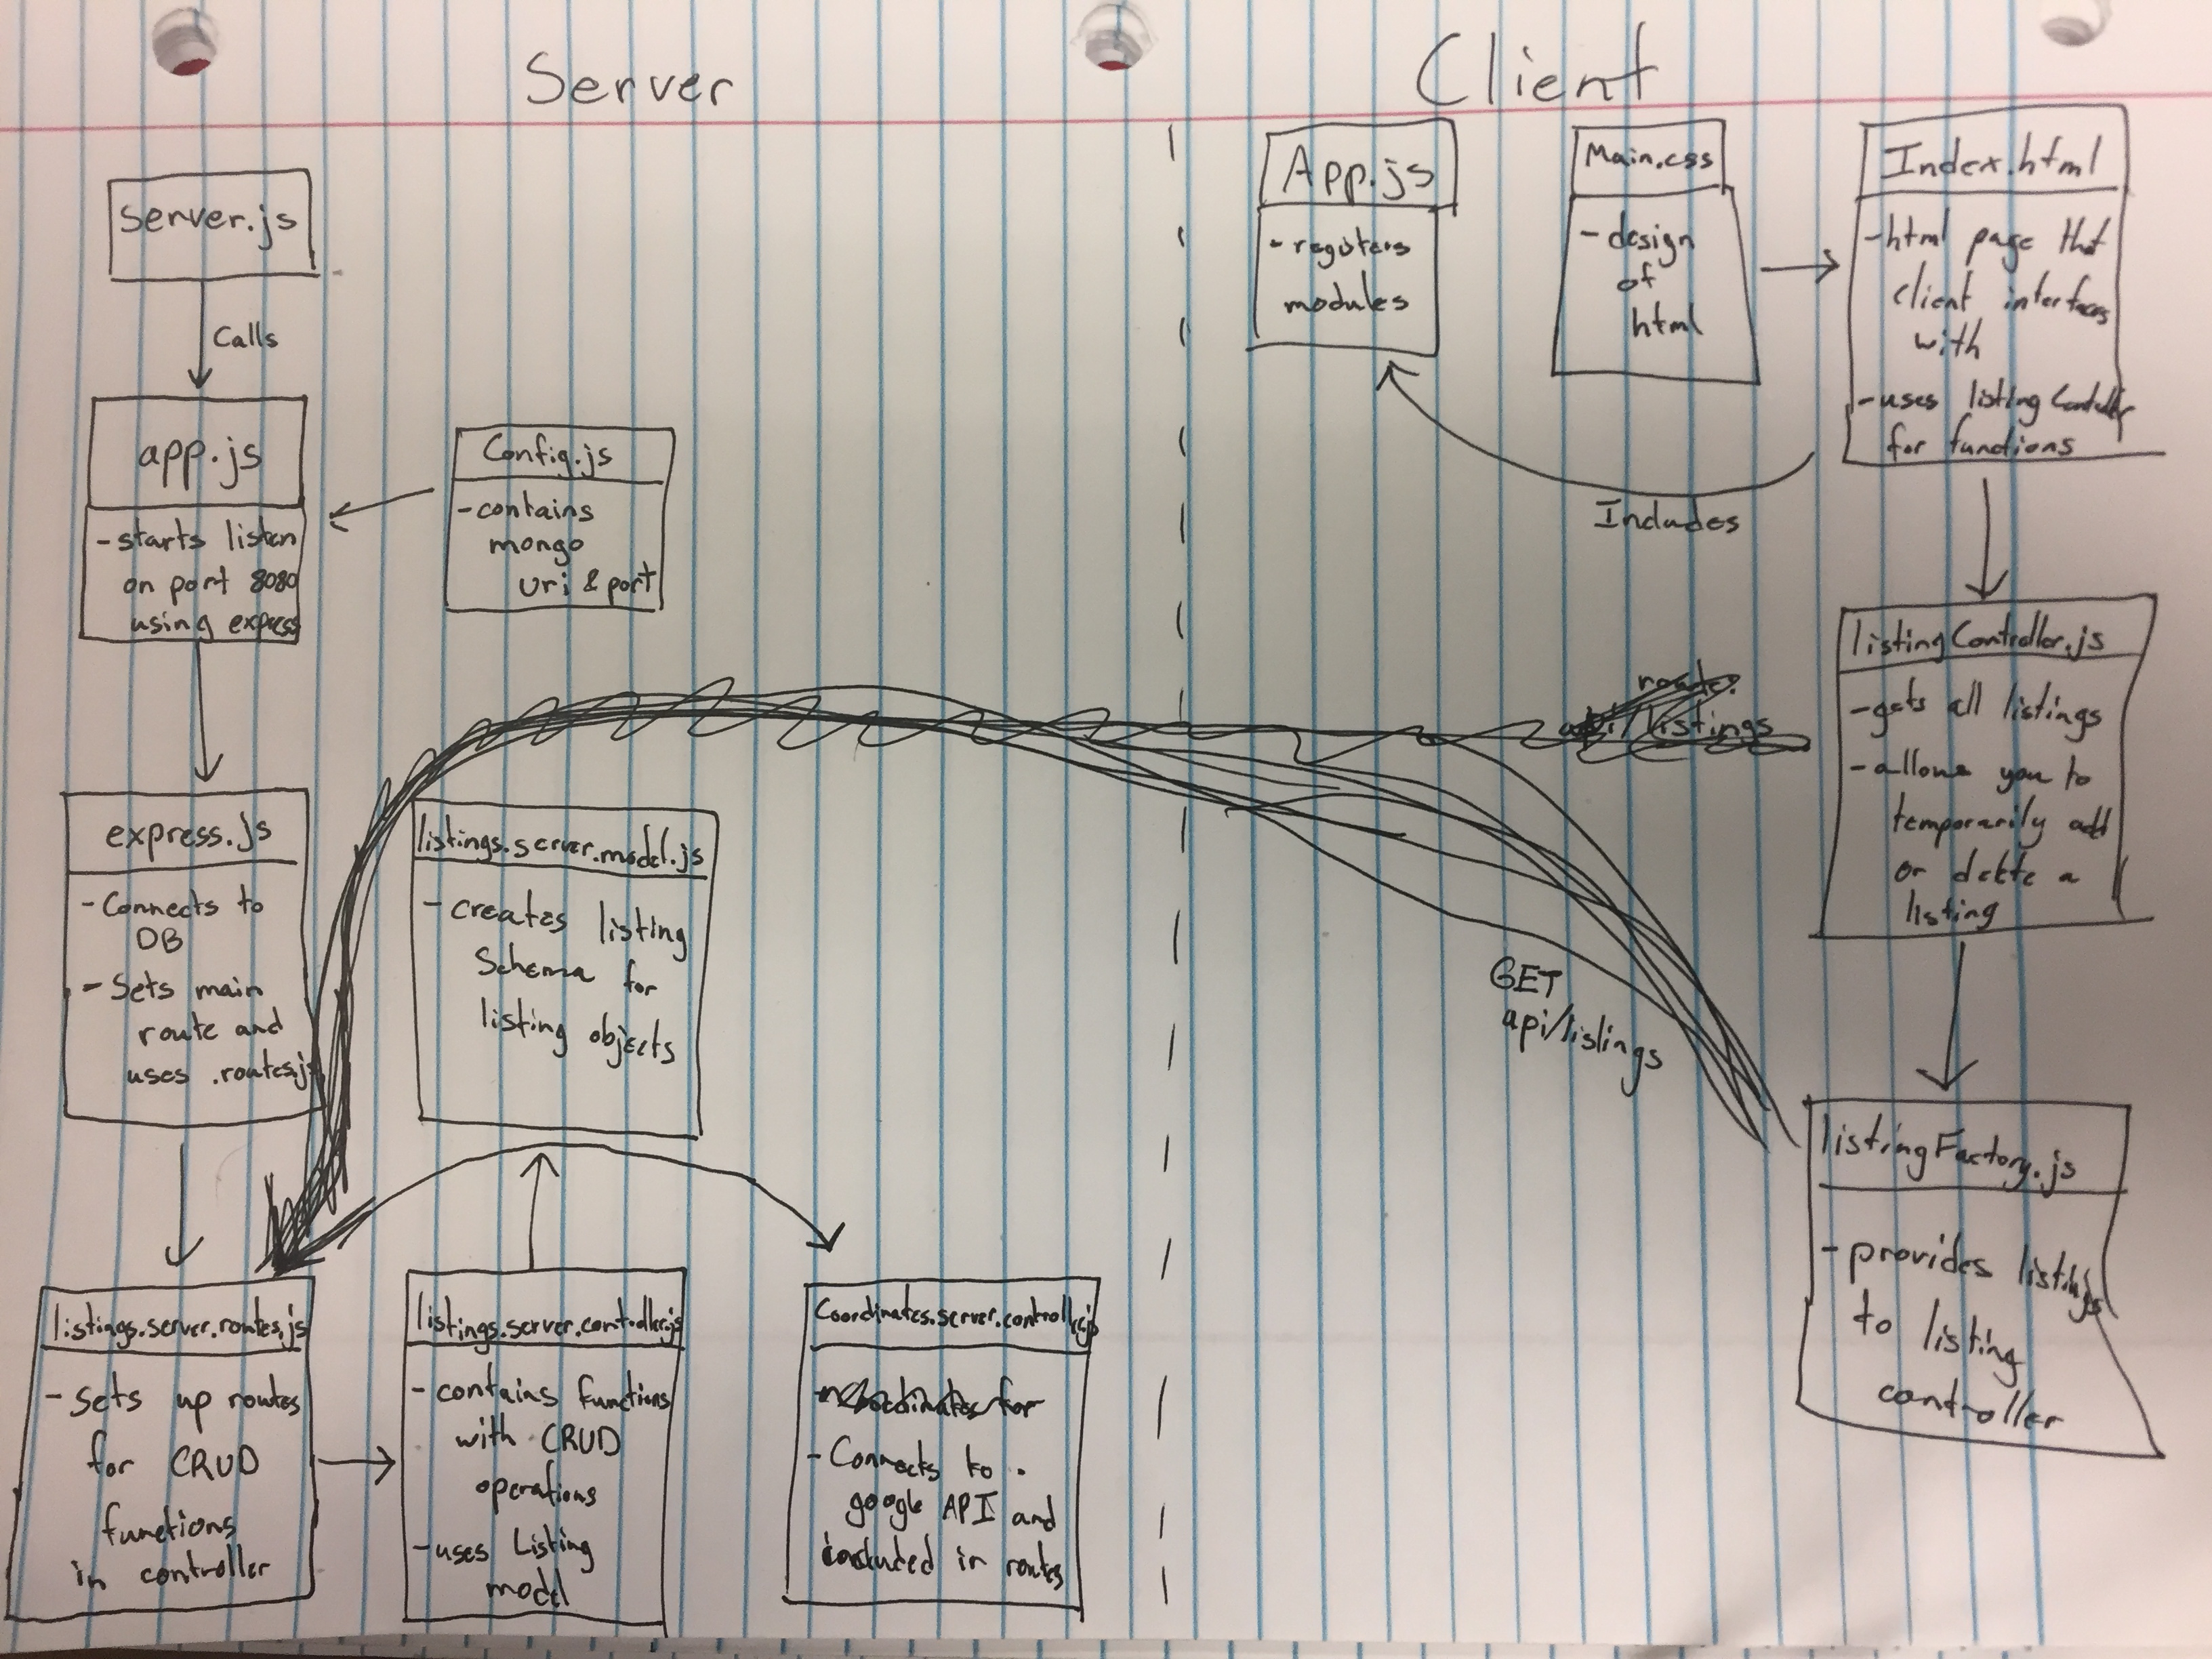 Server
Server.js
Calls
app.js
-starts listen
on port 8080
using express
Config.js
-contains
mongo
uri & port
express.js
-Connects to
DB
-Sets main
route and
uses .routes.js
listings.server.model.js
-Creates listing
Schema for
listing objects
listings.server.routes.js
-Sets up routes
for CRUD
functions
in controller
listings.server.controller.js
-contains functions
with CRUD
operations
-uses Listing
model
Coordinates.server.controller.js
-Connects to
google API and
included in routes
Client
App.js
-registers
modules
Main.css
-design
of
html
Index.html
-html page that
client interfaces
with
-uses listing Controller
for functions
Includes
listingController.js
-gets all listings
-allows you to
temporarily add
or delete a
listing
GET
api/listings
listingFactory.js
-provides listings
to listing
controller